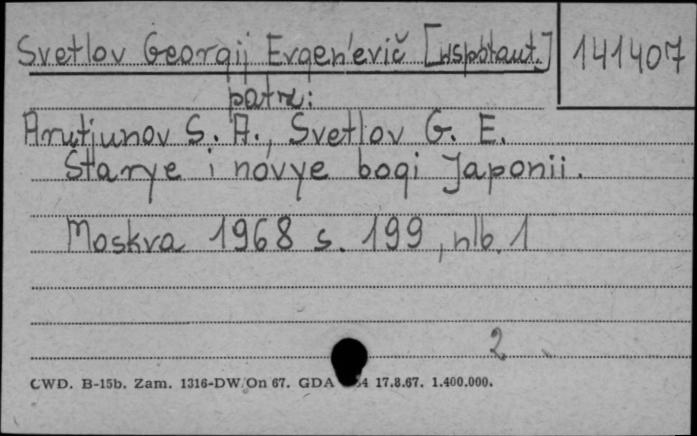 Svetlov Georgij Evgen'evič [współaut.]
141407
patrz:
Arutjunov S. A., Svetlov G. E.
Starye i novye bogi Japonii.
Moskva 1968 s. 199, nlb. 1
2
CWD. B-15b. Zam. 1316-DW/On 67. GDA 4 17.8.67. 1.400.000.